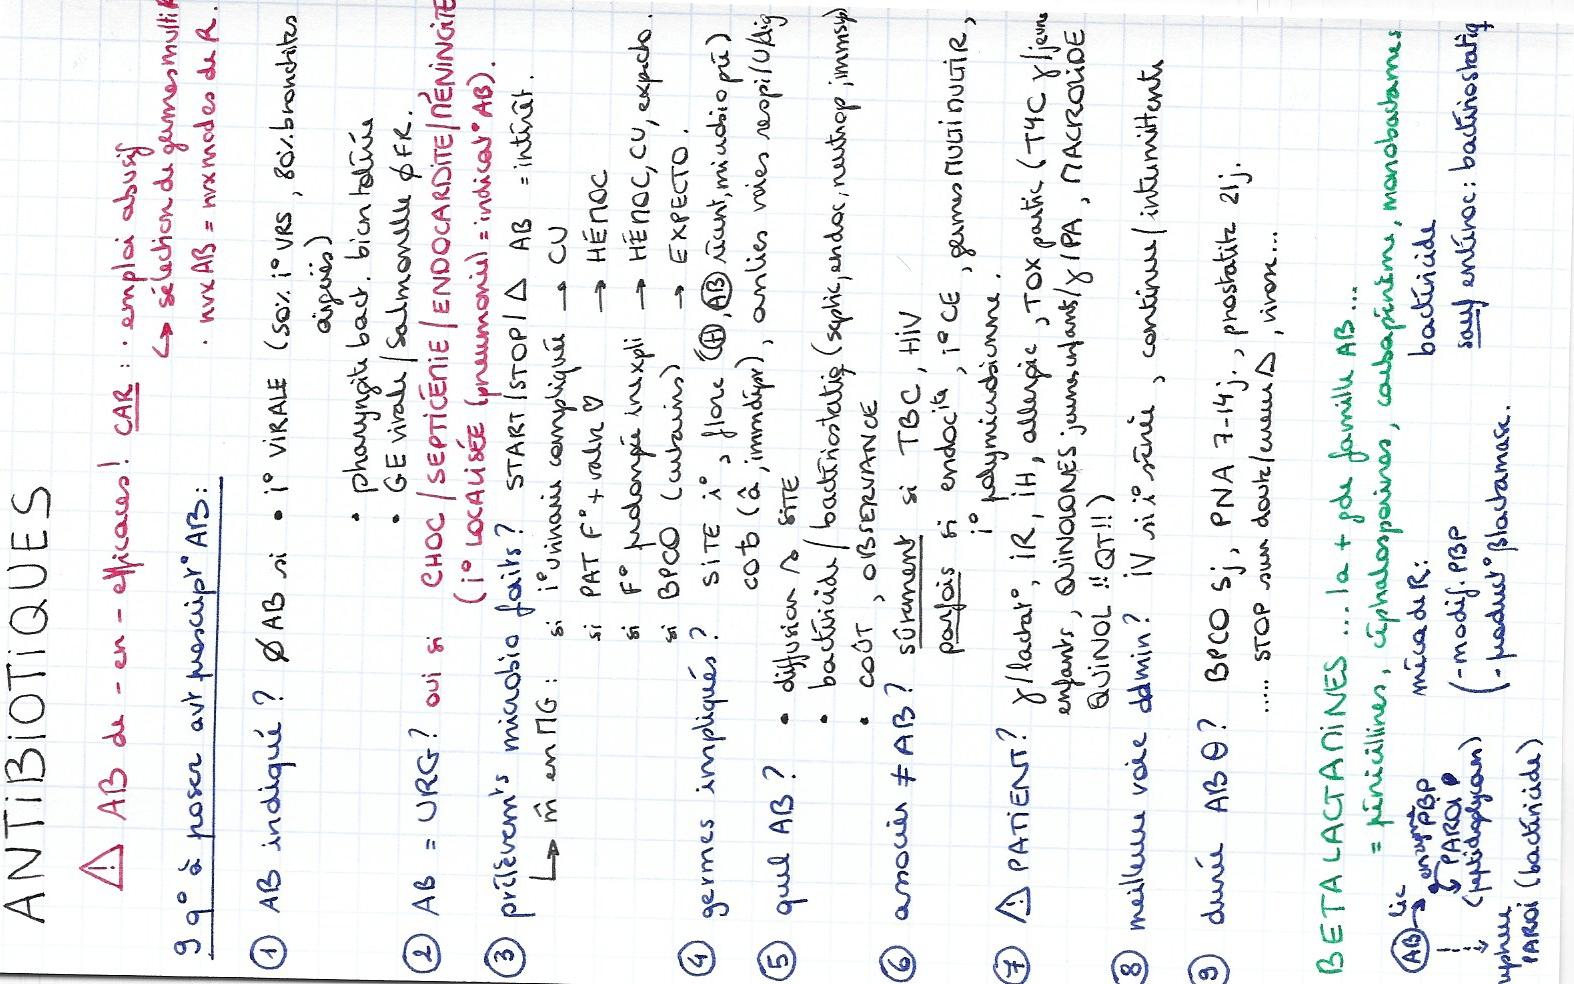 ANTIBIOTIQUES
⚠ AB de - en - efficaces! CAR : · emploi abusif
↳ sélection de germes multi R
9 q° à poser avt prescript° AB :
· nvx AB = nvx modes de R.
① AB indiqué ? Ø AB si • i° VIRALE (50% i° VRS, 80% bronchites
aiguës)
• pharyngite bact. bien tolérée
• GE virale / Salmonelle Ø FR.
② AB = URG ? oui si CHOC / SEPTICÉMIE / ENDOCARDITE / MÉNINGITE
(i° LOCALISÉE (pneumonie) = indicat° AB).
③ prélèvemts microbio faits ? START / STOP / Δ AB = intérêt.
↳ m̂ en MG : si i° urinaire compliquée → CU
si PAT F° + valve ♡ → HÉMOC
si F° prolongée inexpli → HÉMOC, CU, expecto.
si BPCO (certains) → EXPECTO.
④ germes impliqués ? SITE i°, flore (Ⓗ, ⒶⒷ récent, microbio pré)
(â, immdépr), voies respi/U/dig
⑤ quel AB ? • diffusion SITE
• bactéricide / bactériostatiq (septic, endoc, neutrop, immsup)
• COÛT, OBSERVANCE
⑥ associer ≠ AB ? sûrement si TBC, HIV
parfois si endocite, i° CE, germes MULTIMULTIR,
i° polymicrobienne.
⑦ ⚠ PATIENT ? γ/lactat°, IR, IH, allergie, TOX partic (TYC γ/jeunes
enfants, QUINOLONES jeunes enfants/γ/PA, MACROLIDE
QUINOL !! QT !!)
⑧ meilleure voie admin ? IV si i° sévère, continue / intermittente
⑨ durée AB θ ? BPCO 5j, PNA 7-14j., prostatite 21j.
..... STOP si doute/erreur Δ, virose...
BETALACTAMINES ... la + gde famille AB...
= pénicillines, céphalosporines, carbapénème, monobactames
AB → lie enzyme PBP
PAROI
(peptidoglycan)
PAROI (bactéricide)
méca de R :
- modif. PBP
- product° βlactamase.
bactéricide
sauf entéroc : bactériostatiq